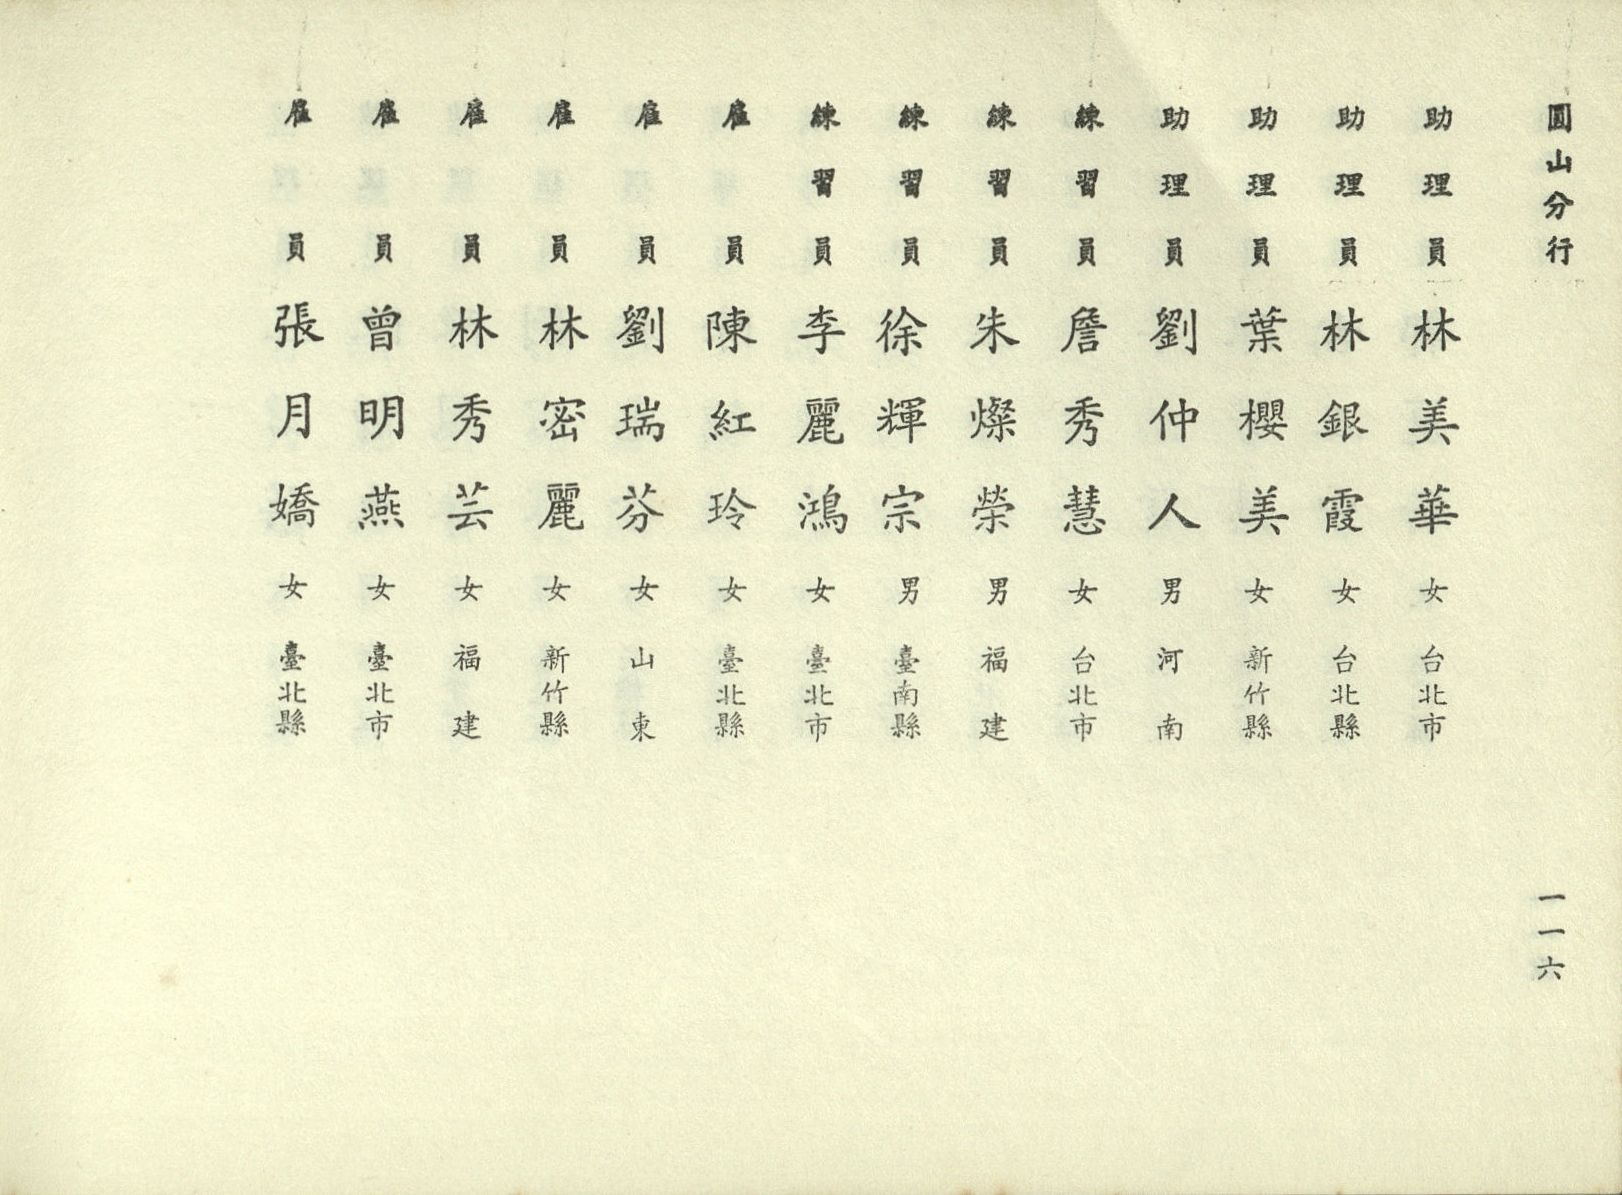 圓山分行
一一六
助理員 林美華 女 台北市
助理員 林銀霞 女 台北縣
助理員 葉櫻美 女 新竹縣
助理員 劉仲人 男 河南
練習員 詹秀慧 女 台北市
練習員 朱燦榮 男 福建
練習員 徐輝宗 男 臺南縣
練習員 李麗鴻 女 臺北市
雇員 陳紅玲 女 臺北縣
雇員 劉瑞芬 女 山東
雇員 林密麗 女 新竹縣
雇員 林秀芸 女 福建
雇員 曾明燕 女 臺北市
雇員 張月嬌 女 臺北縣